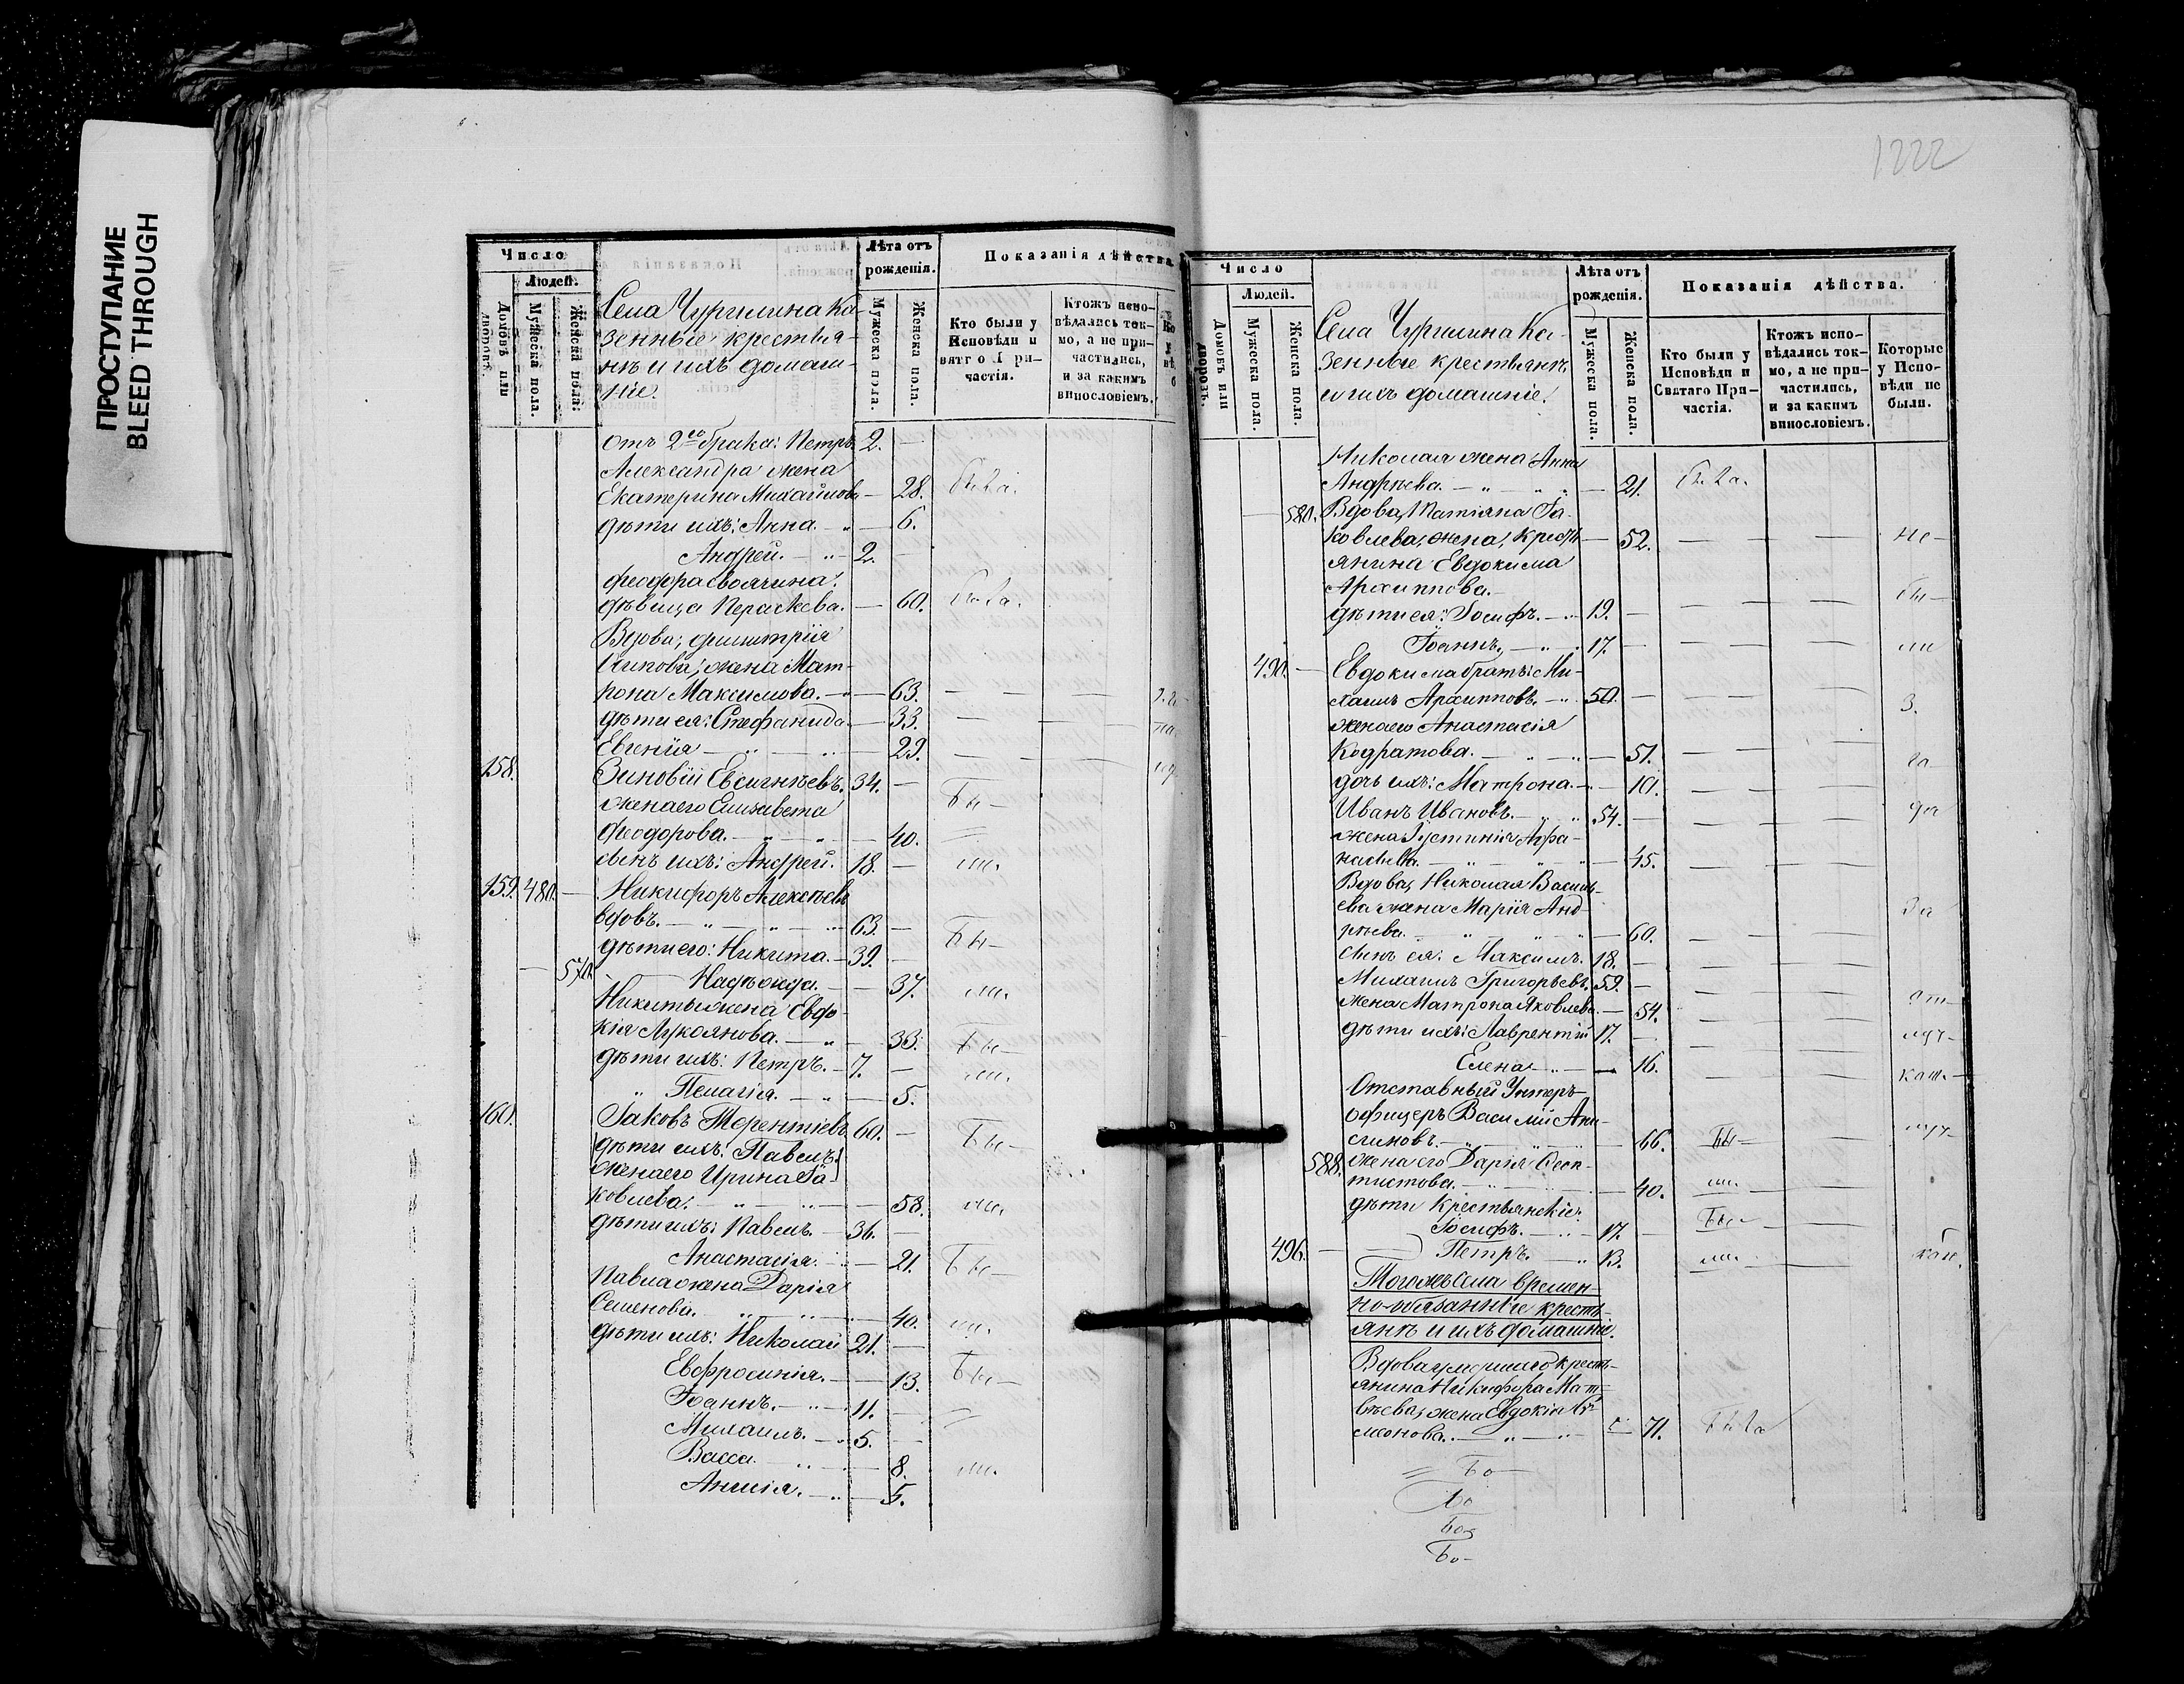 ПРОСТУПАНИЕ
BLEED THROUGH
1222
Число
Людей.
Домовъ или дворовъ.
Мужеска пола.
Женска пола.
Села Чурилина Ка-
зенные крестья-
не и ихъ домаш-
ніе.
Лѣта отъ
рожденія.
Мужеска пола.
Женска пола.
Показанія дѣйства
Кто были у
Исповѣди и
частія.
Ктожъ испо-
вѣдались ток-
мо, а не при-
частились,
и за какимъ
винословіемъ.
отъ 2го брака: Петръ 2. —
Александра жена
Екатерина Михайлова — 28. была.
дѣти ихъ: Анна. — 6.
Андрей. — 2. —
Феодора своячина
дѣвица Параскева. — 60. была.
Вдова, Димитрія
жена Мат-
рона Максимова. — 63. — — —
дѣти ея: Стефанида — 33. — —
Евгенія — 29. — —
158. Зиновій Евсигнѣевъ. 34. —
жена его Елизавета Бы-
Феодорова. — 40.
сынъ ихъ: Андрей. 18. — ли.
159. 480. — Никифоръ Алексѣевъ
вдовъ. — 63. —
дѣти его: Никита. — 39. — Бы-
— 570. Надежда. — 37. ли.
Никиты жена Евдо-
кія Лукоянова. — 33. Бы-
дѣти ихъ: Петръ. — 7. — ли.
Пелагія. — 5.
160. Іаковъ Терентіевъ 60. — Бы-
дѣти ихъ: Павелъ.
жена его Ирина Іа-
ковлева. — 58. ли.
дѣти ихъ: Павелъ. — 36. —
Анастасія. — 21. Бы-
Павла жена Дарія
Семенова. — 40. ли.
дѣти ихъ: Николай 21. —
Евфросинія. — 13. Бы-
Іоаннъ. — 11. —
Михаилъ. — 5. —
Васса. — 8. ли.
— 5.
Число
Людей.
Домовъ или дворовъ.
Мужеска пола.
Женска пола.
Села Чурилина Ка-
зенные крестьяне
и ихъ домашніе.
Лѣта отъ
рожденія.
Мужеска пола.
Женска пола.
Показанія дѣйства.
Кто были у
Исповѣди и
Святаго При-
частія.
Ктожъ испо-
вѣдались ток-
мо, а не при-
частились,
и за какимъ
винословіемъ.
Которые
у Испо-
вѣди не
были.
Николая жена Анна
Андреева. — 21. была.
— 580. Вдова, Татіана Іа-
ковлева, жена, кресть- — 52. — — — не-
янина Евдокима
Архиппова.
дѣти ея: Іосифъ. — 19. — — — — бы-
Іоаннъ, — 17. — — — — ли
490. — Евдокима братъ: Ми-
хаилъ Архипповъ. — 50. — — — — З.
жена его Анастасія
Кодратова. — 51. — — —
дочь ихъ: Матрона. — 10. — —
Иванъ Ивановъ. — 54. — — —
жена Іустинія Афа-
насьева. — 45. — —
Вдова, Николая Василь-
ева жена Марія Анд-
рѣева. — 60. — —
сынъ ея: Максимъ. 18. — — —
Михаилъ Григорьевъ. 59. — — — от-
жена Матрона Яковлева. — 54. — —
дѣти ихъ: Лаврентій 17. — — — луч-
Елена — 16. — —
Отставный Унтеръ-
офицеръ Василій Ани-
симовъ. — 66. Бы- —
588. жена его Дарія Феок-
тистова. — 40. ли. —
дѣти крестьянскіе:
Іосифъ. — 17. — Бы- —
496. — Петръ. — 13. ли. —
Тогожъ села времен-
но-обязанные кресть-
яне и ихъ домашніе.
Вдова умершаго кресть-
янина Никифора Мат-
вѣева, жена Евдокія Си-
меонова. — 71. была
Бо-
Бо
Бо-
Бо-